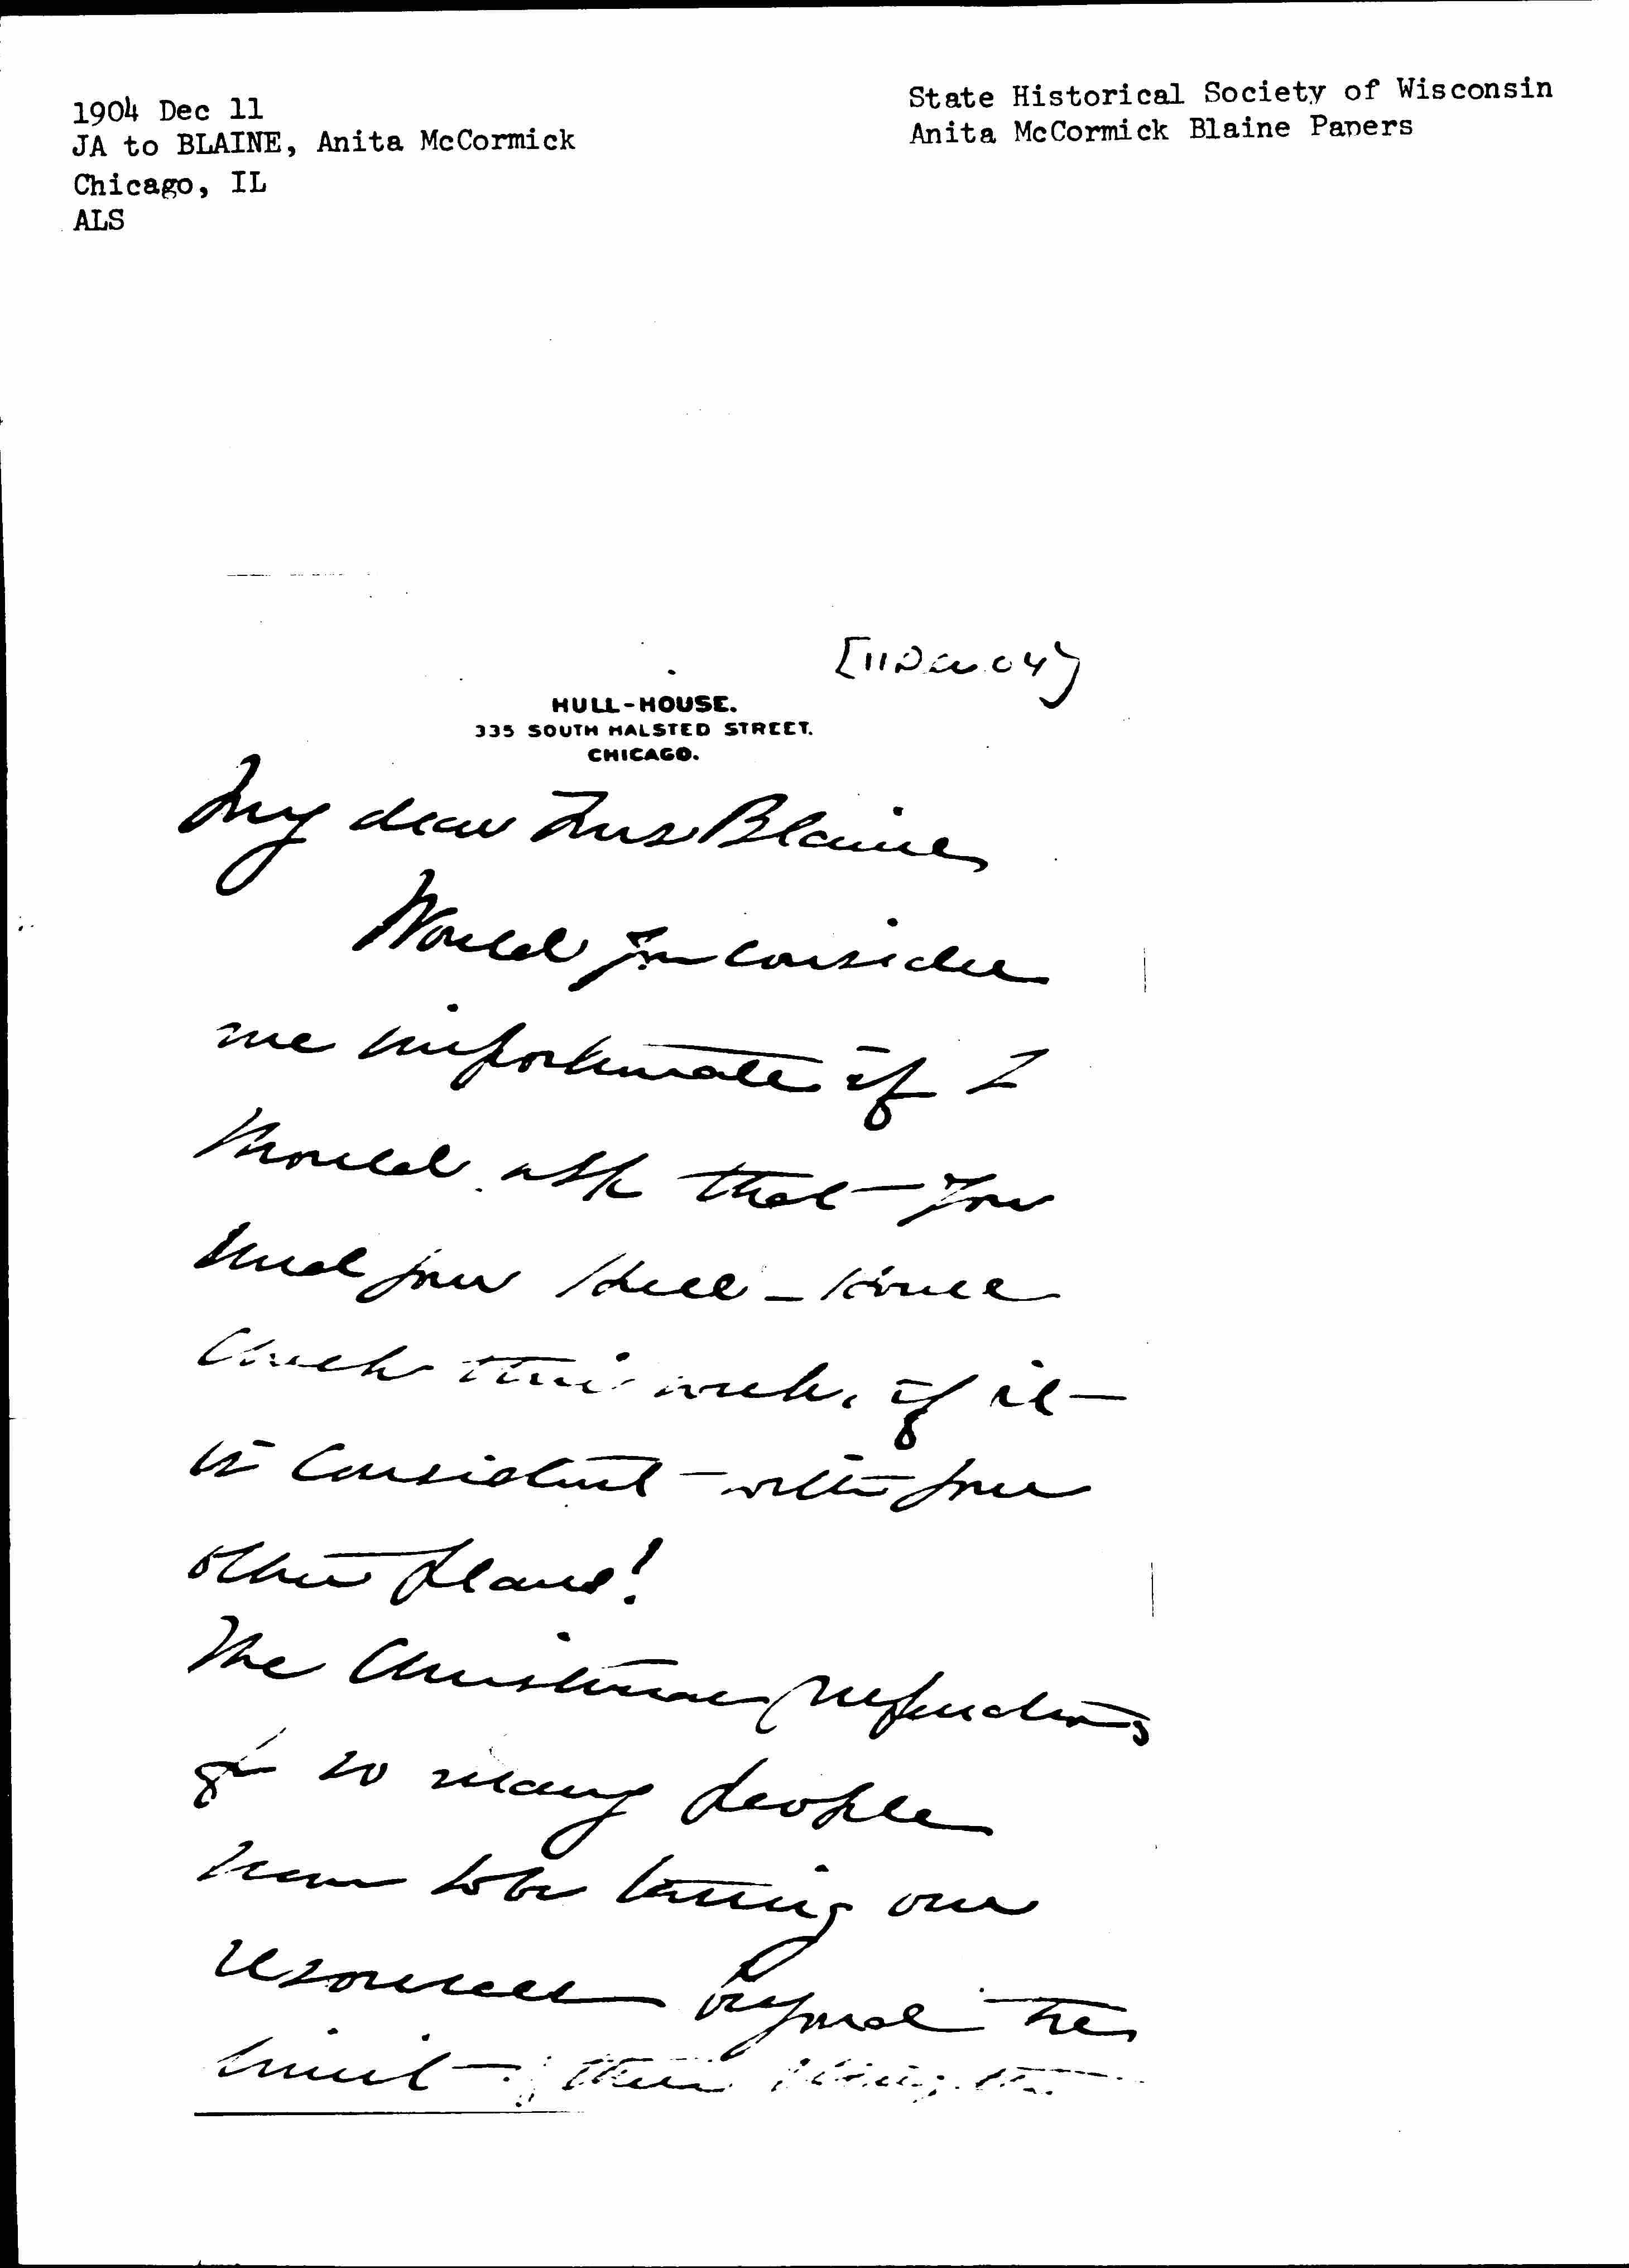 1904 Dec 11
JA to BLAINE, Anita McCormick
Chicago, IL
ALS
State Historical Society of Wisconsin
Anita McCormick Blaine Papers
[11 Dec 04]
HULL-HOUSE.
335 SOUTH HALSTED STREET.
CHICAGO.
My dear Mrs Blaine
Would you consider
me importunate if I
would ask that you
send your Hull-House
check this week, if it
is consistent with your
other plans!
The Christmas preparations
for so many people
seem to be taxing our
resources beyond the
limit of their strength